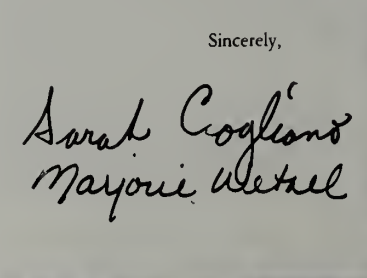 Sincerely,
Sarah Cogliano
Marjorie Wetzel